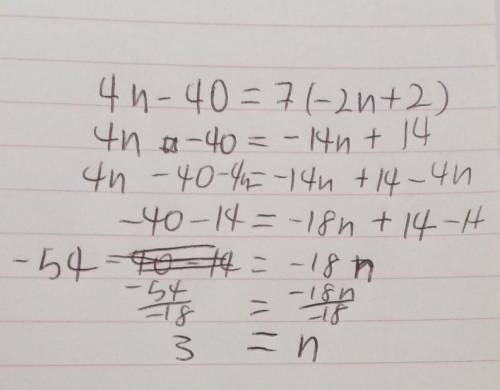 4n - 40 = 7(-2n+2)
4n -40 = -14n + 14
4n -40-4n = -14n +14-4n
-40-14 = -18n + 14-14
-54 = -18n
-54/-18 = -18n/-18
3 = n